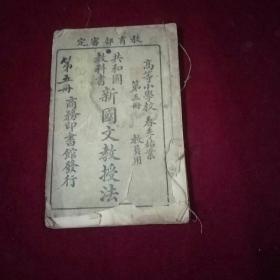 教育部審定
高等小學校 春季始業
第五冊 教員用
共和國
教科書
新國文教授法
第五冊 商務印書館發行